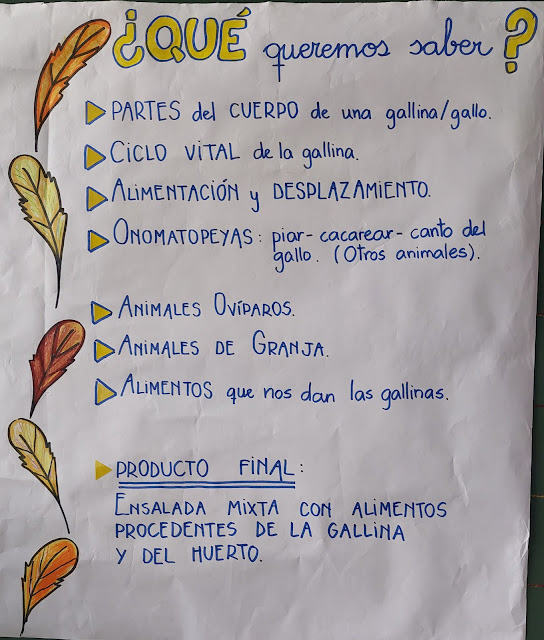 ¿QUÉ queremos saber?
PARTES del CUERPO de una gallina/gallo.
CICLO VITAL de la gallina.
ALIMENTACIÓN y DESPLAZAMIENTO.
ONOMATOPEYAS: piar- cacarear- canto del
gallo. (Otros animales).
ANIMALES OVÍPAROS.
ANIMALES DE GRANJA.
ALIMENTOS que nos dan las gallinas.
PRODUCTO FINAL:
ENSALADA MIXTA CON ALIMENTOS
PROCEDENTES DE LA GALLINA
Y DEL HUERTO.